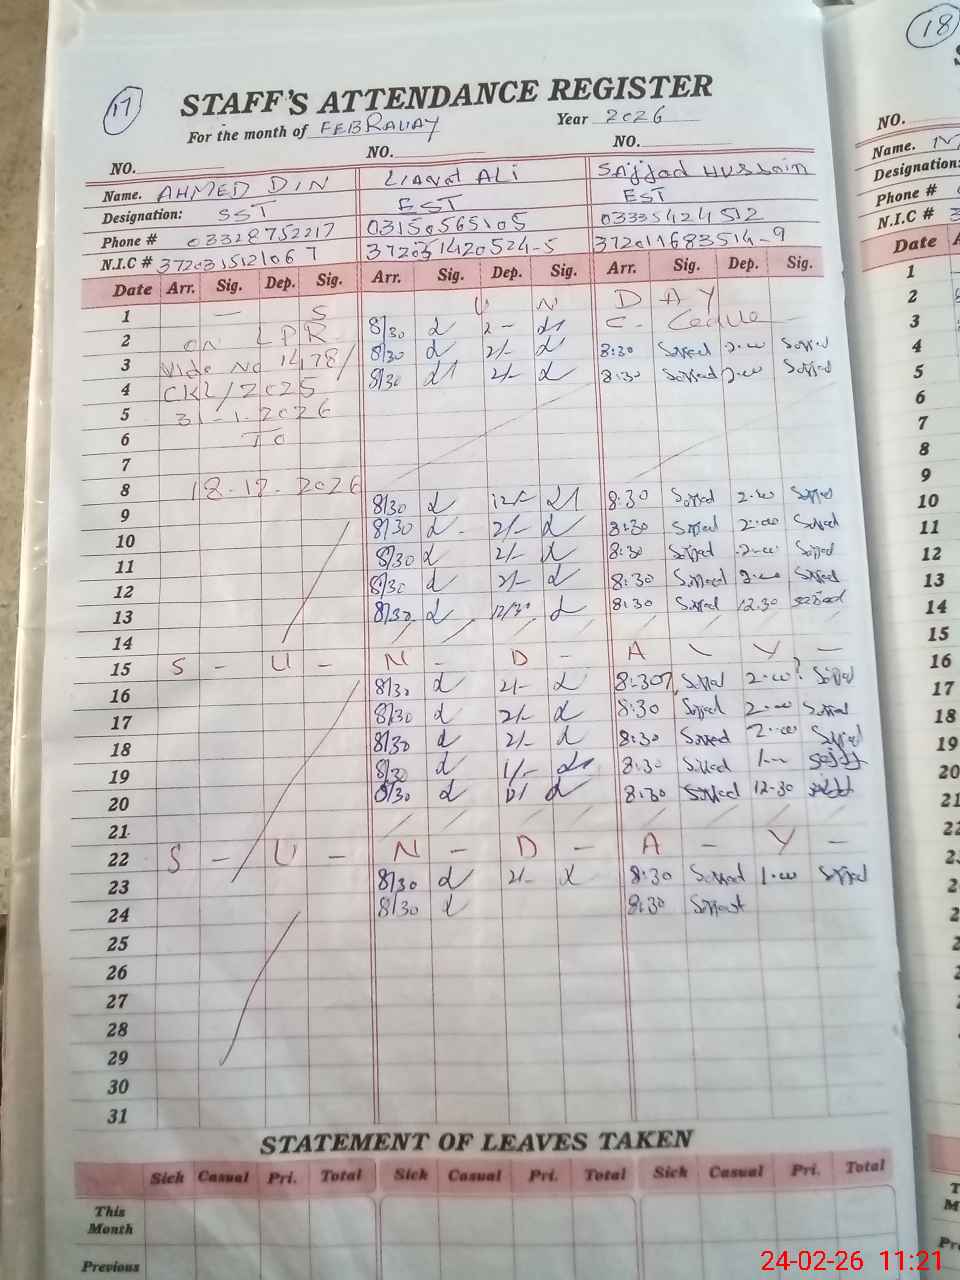 17
18
STAFF'S ATTENDANCE REGISTER
For the month of FEBRAUAY Year 2026
NO. NO. NO.
NO.
Name. AHMED DIN LIAQAT ALI Sajjad HUSSAIN
Name.
Designation: SST EST EST
Designation:
Phone # 03328752217 03150565105 03335424512
Phone #
N.I.C # 3720315121067 372031420524-5 372011683514-9
N.I.C #
Date Arr. Sig. Dep. Sig. Arr. Sig. Dep. Sig. Arr. Sig. Dep. Sig.
Date
1 — S U N D A Y
2 ON LPR 8/30 2- C. Leave
3 Vide No 1478/ 8/30 2/- 8:30 2.00
4 CKL/2025 8/30 2/- 8:30 2.00
5 31-1-2026
6 To
7
8 18-12-2026
9 8/30 12/- 8:30 2.00
10 8/30 2/- 8:30 2.00
11 8/30 2/- 8:30 2.00
12 8/30 2/- 8:30 2.00
13 8/30 12/30 8:30 12.30
14
15 S - U - N - D - A - Y -
16 8/30 2/- 8:30 2.00
17 8/30 2/- 8:30 2.00
18 8/30 2/- 8:30 2.00
19 8/30 1/- 8:30 1-
20 8/30 8:30 12-30
21
22 S - U - N - D - A - Y -
23 8/30 2/- 8:30 1.00
24 8/30 8:30
25
26
27
28
29
30
31
1
2
3
4
5
6
7
8
9
10
11
12
13
14
15
16
17
18
19
20
21
STATEMENT OF LEAVES TAKEN
Sick Casual Pri. Total Sick Casual Pri. Total Sick Casual Pri. Total
This
Month
Previous
24-02-26 11:21